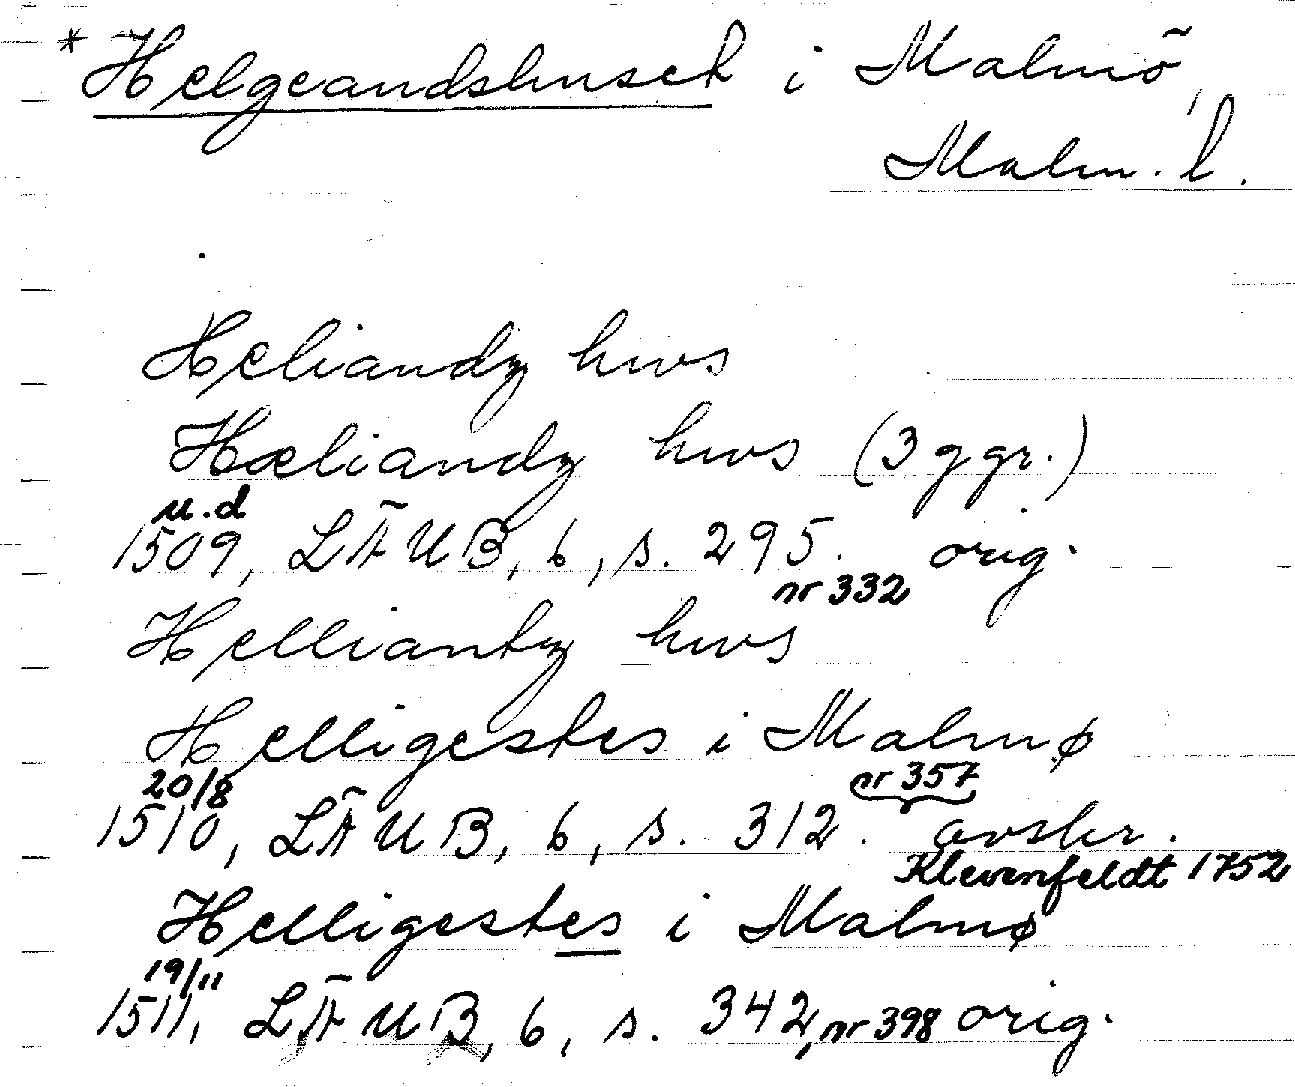 * Helgeandshuset i Malmö,
Malm. l.
Heliandz hws
Hæliandz hws (3 ggr.)
u.d
1509, LÄUB, 6, s. 295. orig.
nr 332
Helliantz hws
Helligestes i Malmø
20/8
nr 357
1510, LÄUB, 6, s. 312. avskr.
Klevenfeldt 1752
Helligestes i Malmø
19/11
1511, LÄUB, 6, s. 342, nr 398 orig.